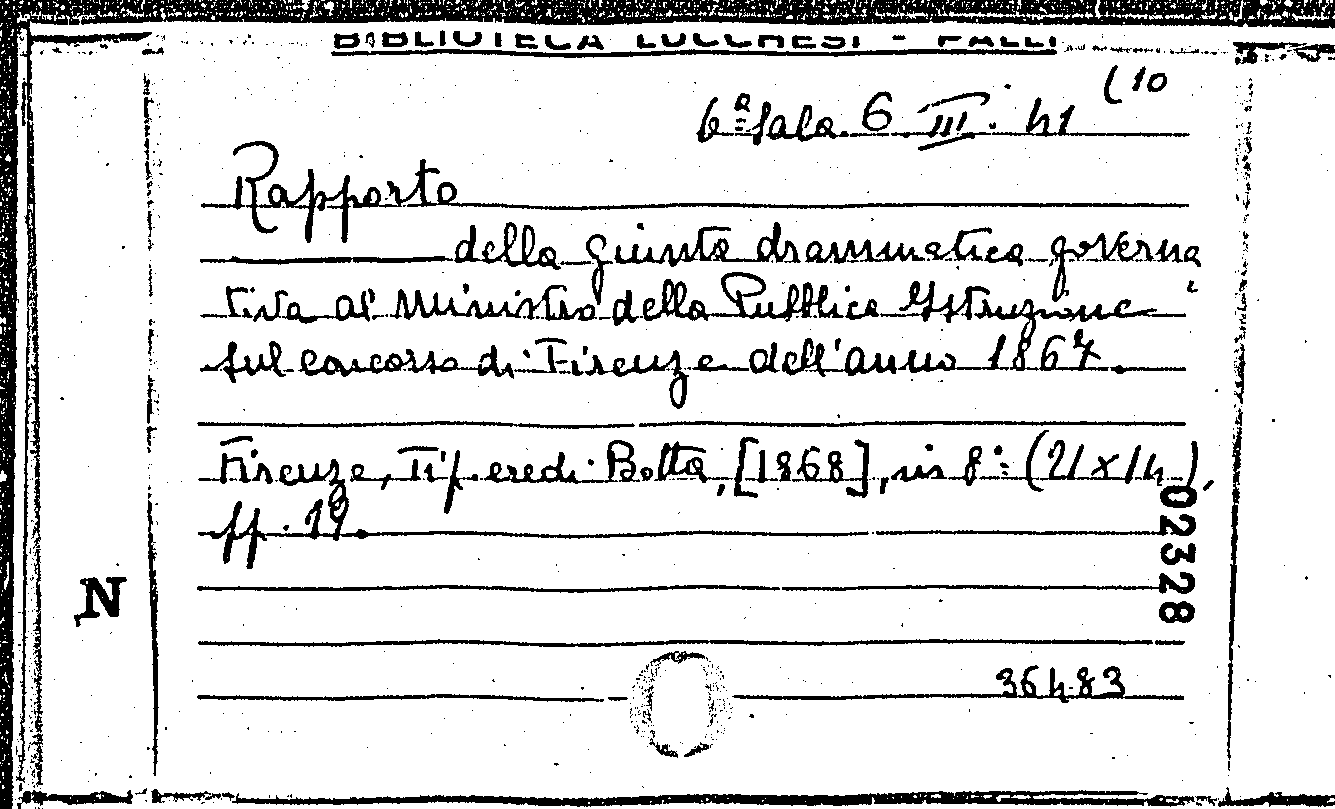 BIBLIOTECA LUCCHESI - PALLI
6ª Sala. 6. III. 41 (10
Rapporto
della giunta drammatica governa
tiva al Ministro della Pubblica Istruzione
sul concorso di Firenze dell'anno 1867.
Firenze, Tip. eredi Botta, [1868], in 8º (21x14),
pp. 19.
02328
N
36483